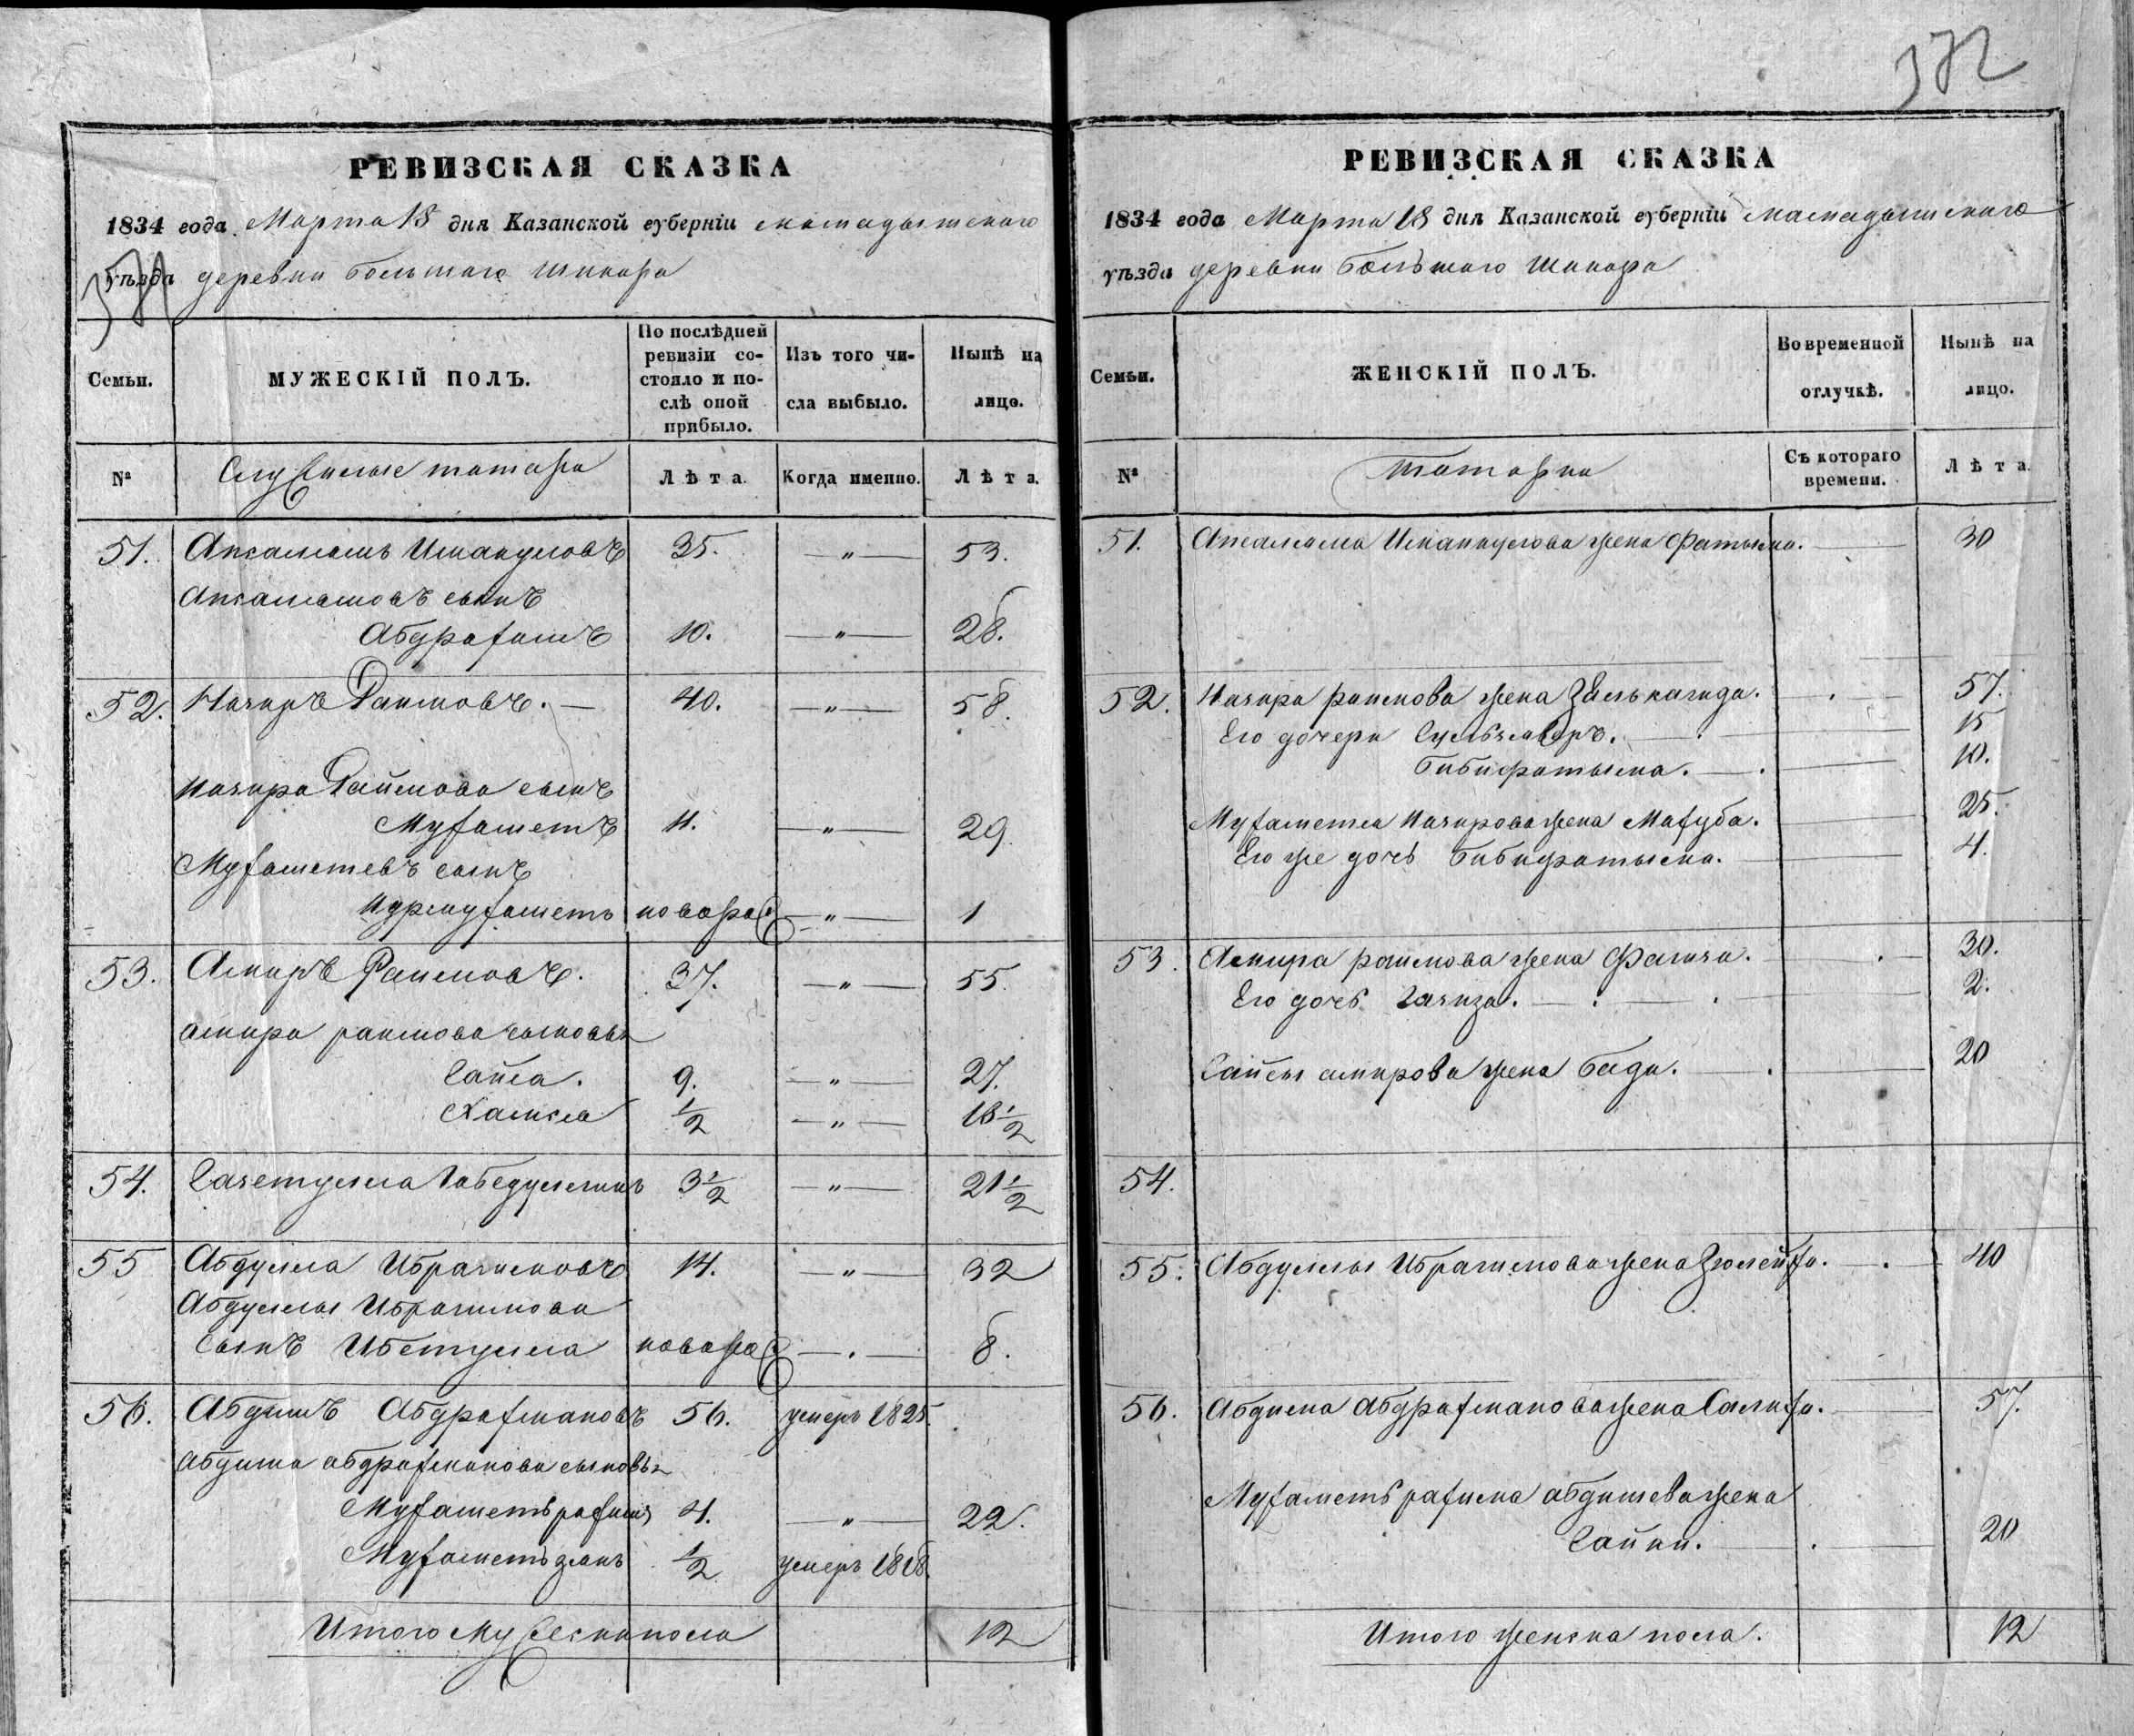 372
РЕВИЗСКАЯ СКАЗКА
1834 года Марта 18 дня Казанской губерніи мамадышскаго
уѣзда деревни Большаго Шинара
371
Семьи.
МУЖЕСКІЙ ПОЛЪ.
По послѣдней ревизіи состояло и послѣ оной прибыло.
Изъ того числа выбыло.
Нынѣ на лицо.
№
Служилые татара
Лѣта.
Когда именно.
Лѣта.
51. Апсалямъ Иманкуловъ 35. —〃— 53.
Апсалямовъ сынъ
Абдрафимъ 10. —〃— 28.
52. Назиръ Раимовъ. — 40. —〃— 58.
Назира Раймова сынъ
Мухаметъ 11. —〃— 29.
Мухаметевъ сынъ
Нурмухаметъ новорож —〃— 1
53. Амиръ Раимовъ. 37. —〃— 55.
амира раимова сыновья
Сайса. 9. —〃— 27.
Хамса 1/2 —〃— 18 1/2
54. Сагетулла Габедуллинъ 3 1/2 —〃— 21 1/2
55 Абдулла Ибрагимовъ 14. —〃— 32
Абдуллы Ибрагимова
сынъ Ибетулла новорож — . — 8.
56. Абдишъ Абдрахмановъ 56. умеръ 1825.
абдиша абдрахманова сыновья
Мухаметьрахимъ 4. —〃— 22.
Мухаметьзянъ 1/2 умеръ 1818.
Итого мужеска пола 12
РЕВИЗСКАЯ СКАЗКА
1834 года Марта 18 дня Казанской губерніи мамадышскаго
уѣзда деревни Большаго Шинара
Семьи.
ЖЕНСКІЙ ПОЛЪ.
Во временной отлучкѣ.
Нынѣ на лицо.
№
Татарки
Съ котораго времени.
Лѣта.
51. Апсаляма Иманкулова жена Фатыма. 30
52. Назира раимова жена Зюлькагида. 57.
Его дочери 15
Бибифатыма. 10.
Мухаметя Назирова жена Махуба. 25.
Его же дочь Бибифатыма. 4.
53. Амира раимова жена Фагиза. 30.
Его дочь Газиза. 2.
Сайсы амирова жена Бади. 20
54.
55. Абдуллы Ибрагимова жена Зюлейха. 40
56. Абдиша Абдрахманова жена Салиха. 57.
Мухаметьрахима абдишева жена
Гайни. 20
Итого женска пола. 12